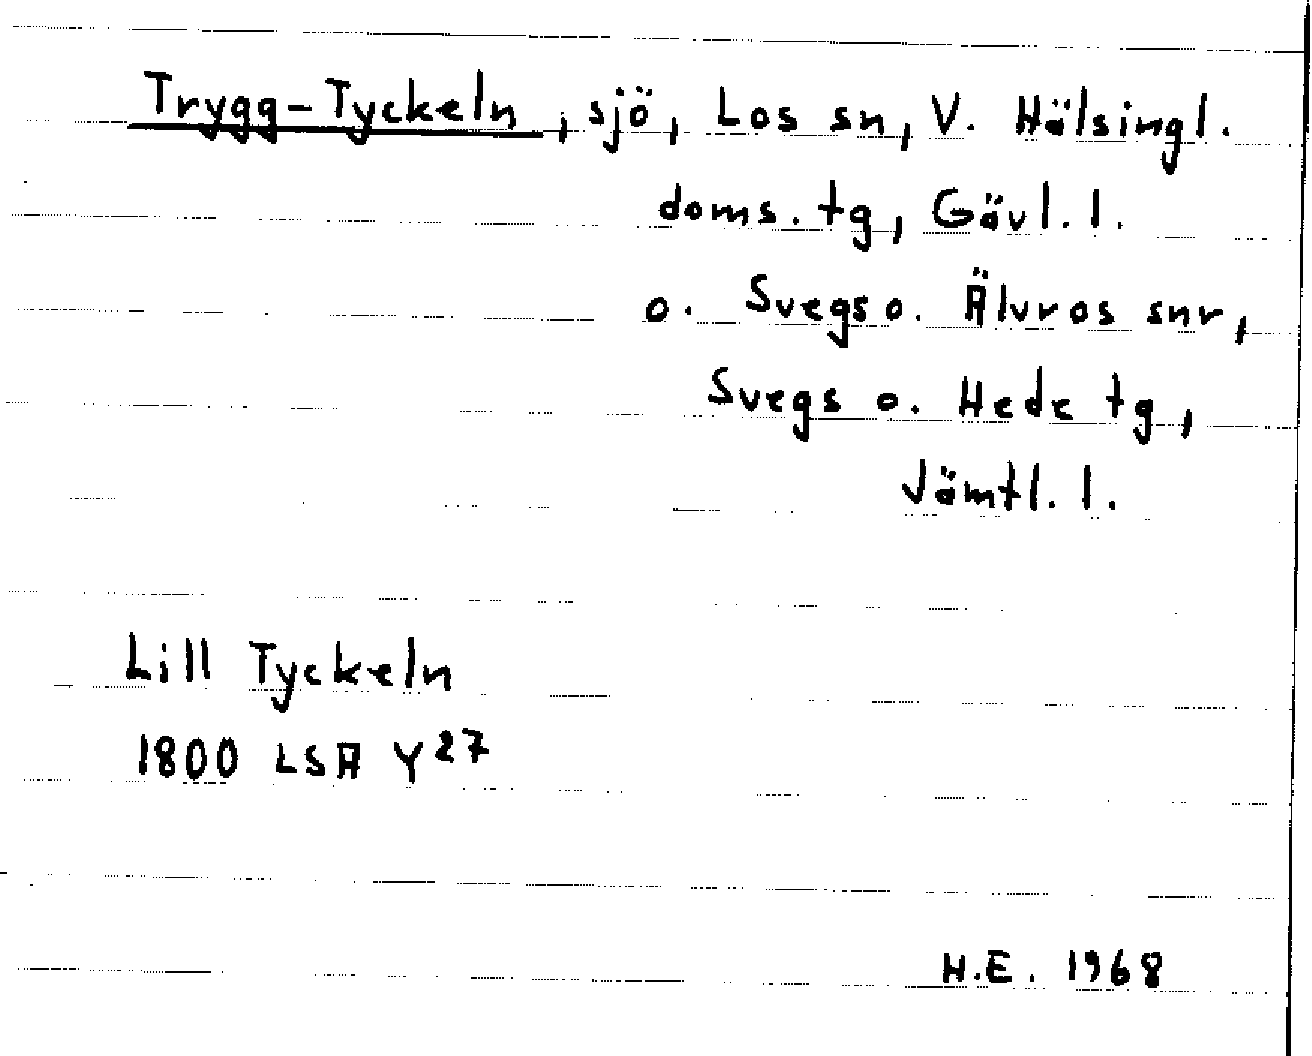 Trygg-Tyckeln, sjö, Los sn, V. Hälsingl.
doms. tg, Gävl. l.
o. Svegs o. Älvros snr,
Svegs o. Hede tg,
Jämtl. l.
Lill Tyckeln
1800 LSA Y27
H.E. 1968